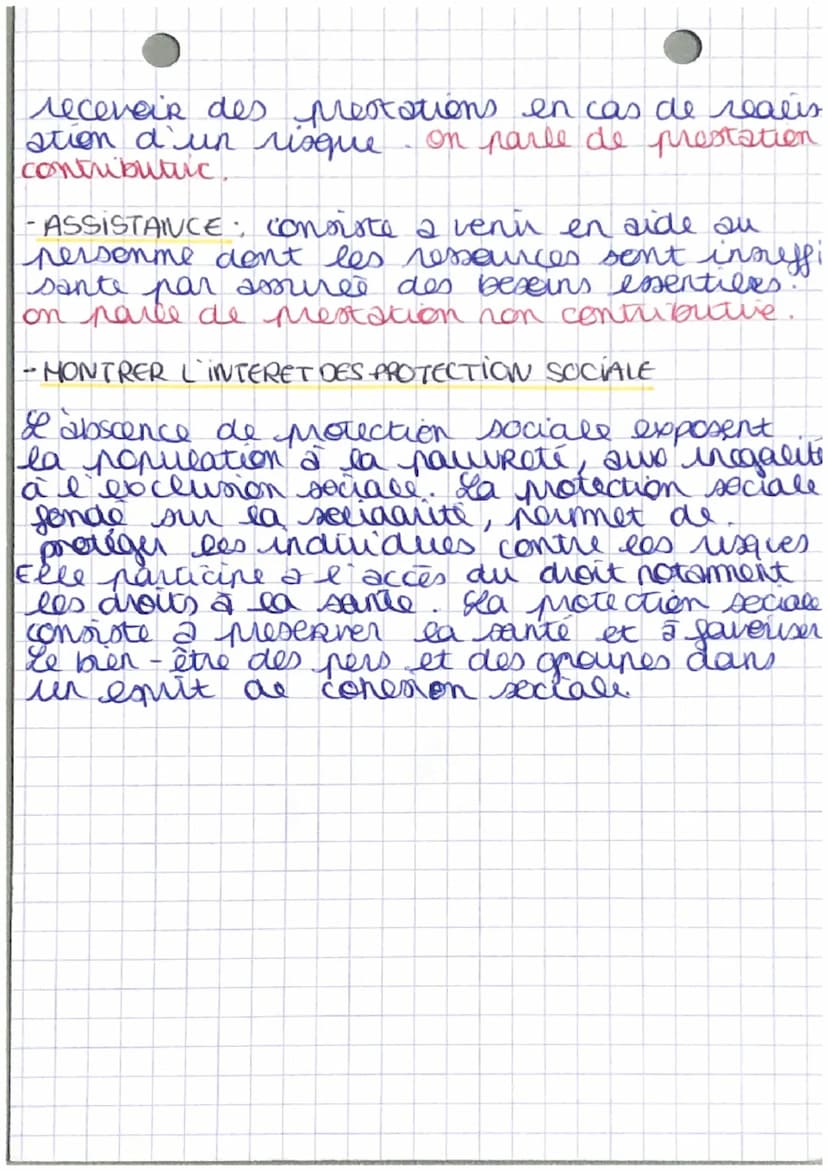 recevoir des prestations en cas de realis
ation d'un risque. on parle de prestation
contributric.
- ASSISTANCE : consiste a venir en aide au
personne dont les ressources sont insuffi
sante par assurée des besoins essentieles.
on parle de prestation non contributive.
- MONTRER L'INTERET DES PROTECTION SOCIALE
L'abscence de protection sociale exposent
la population à la pauvreté, aux inegalité
à l'exclusion sociale. La protection sociale
fondé sur la solidarité, permet de
protéger les individues contre les risques
Elle participe a l'accès du droit notamment
les droits à la santé. La protection sociale
consiste a preserver la santé et à favoriser
Le bien-être des pers et des groupes dans
un esprit de cohesion sociale.